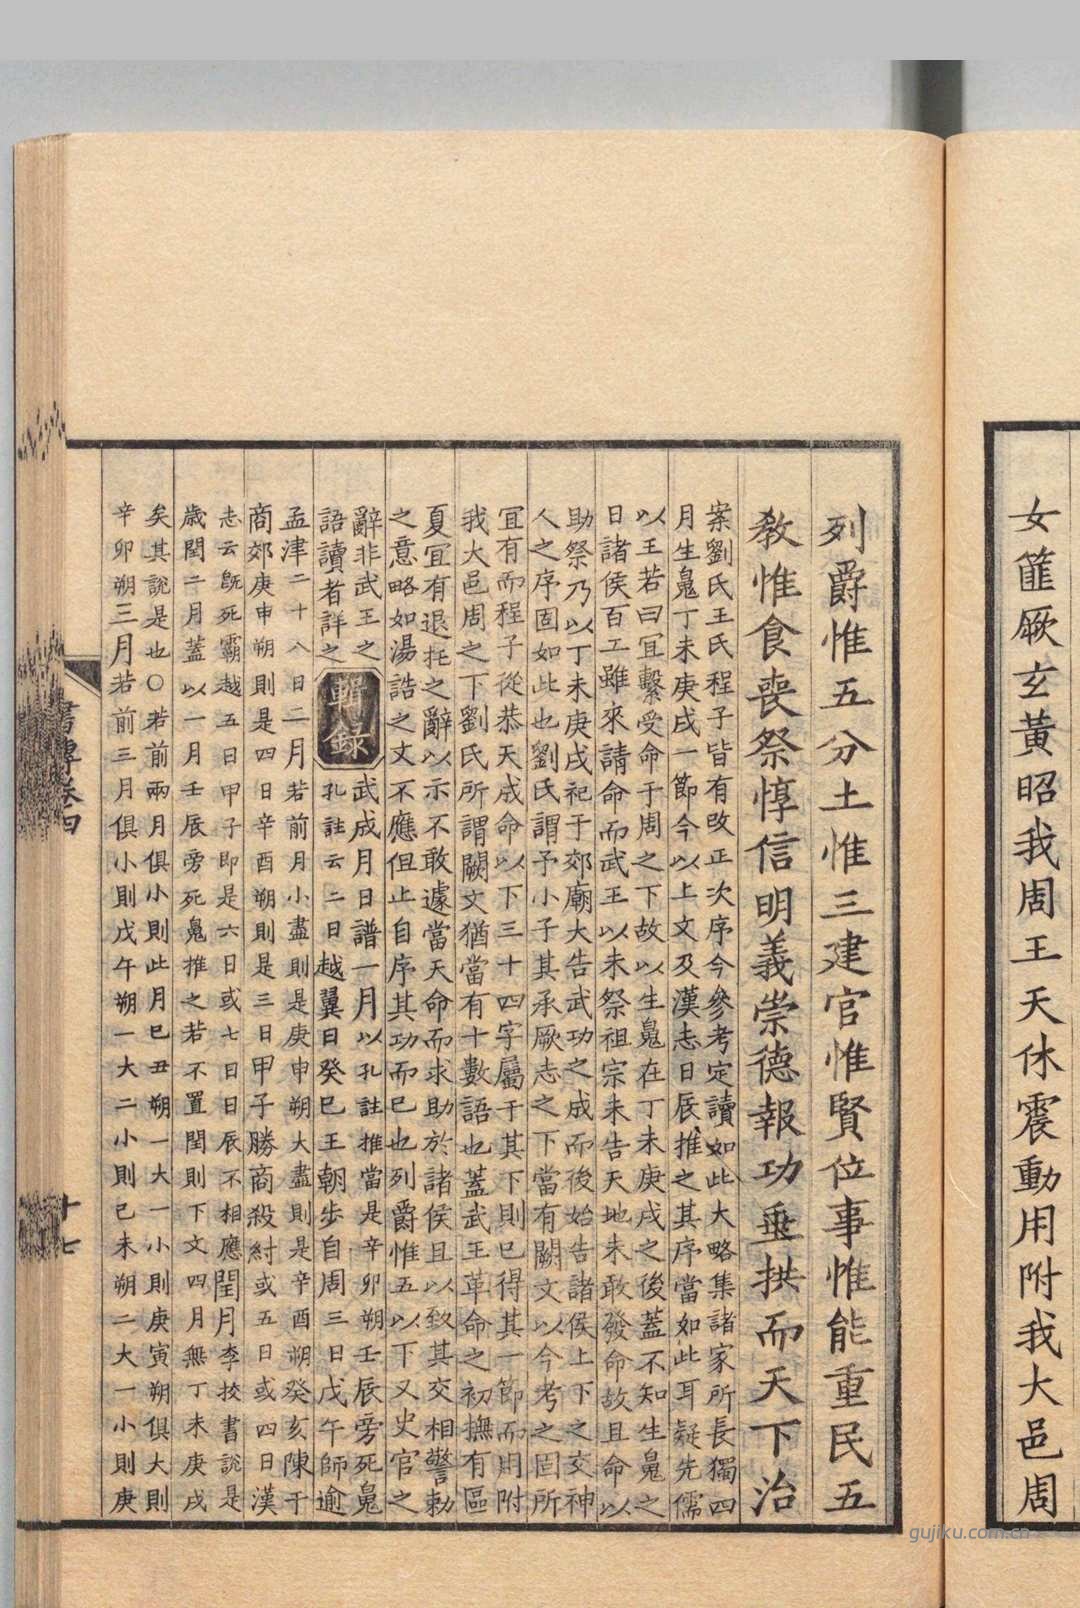 女篚厥玄黃昭我周王天休震動用附我大邑周
列爵惟五分土惟三建官惟賢位事惟能重民五
教惟食喪祭惇信明義崇德報功垂拱而天下治
案劉氏王氏程子皆有改正次序今參考定讀如此大略集諸家所長獨四
月生魄丁未庚戌一節今以上文及漢志日辰推之其序當如此耳疑先儒
以王若曰宜繫受命于周之下故以生魄在丁未庚戌之後蓋不知生魄之
日諸侯百工雖來請命而武王以未祭祖宗未告天地未敢發命故且命以
助祭乃以丁未庚戌祀于郊廟大告武功之成而後始告諸侯上下之交神
人之序固如此也劉氏謂予小子其承厥志之下當有闕文以今考之固所
宜有而程子從恭天成命以下三十四字屬于其下則已得其一節而用附
我大邑周之下劉氏所謂闕文猶當有十數語也蓋武王革命之初撫有區
夏宜有退托之辭以示不敢遽當天命而求助於諸侯且以致其交相警勑
之意略如湯誥之文不應但止自序其功而已也列爵惟五以下又史官之
辭非武王之
語讀者詳之
輯錄
武成月日譜一月以孔註推當是辛卯朔壬辰旁死魄
孔註云二日越翼日癸巳王朝步自周三日戊午師逾
孟津二十八日二月若前月小盡則是庚申朔大盡則是辛酉朔癸亥陳于
商郊庚申朔則是四日辛酉朔則是三日甲子勝商殺紂或五日或四日漢
志云旣死霸越五日甲子即是六日或七日日辰不相應閏月李挍書說是
歲閏二月蓋以一月壬辰旁死魄推之若不置閏則下文四月無丁未庚戌
矣其說是也○若前兩月俱小則此月己丑朔一大一小則庚寅朔俱大則
辛卯朔三月若前三月俱小則戊午朔一大二小則己未朔二大一小則庚
書傳卷四
十七
gujiku.com.cn